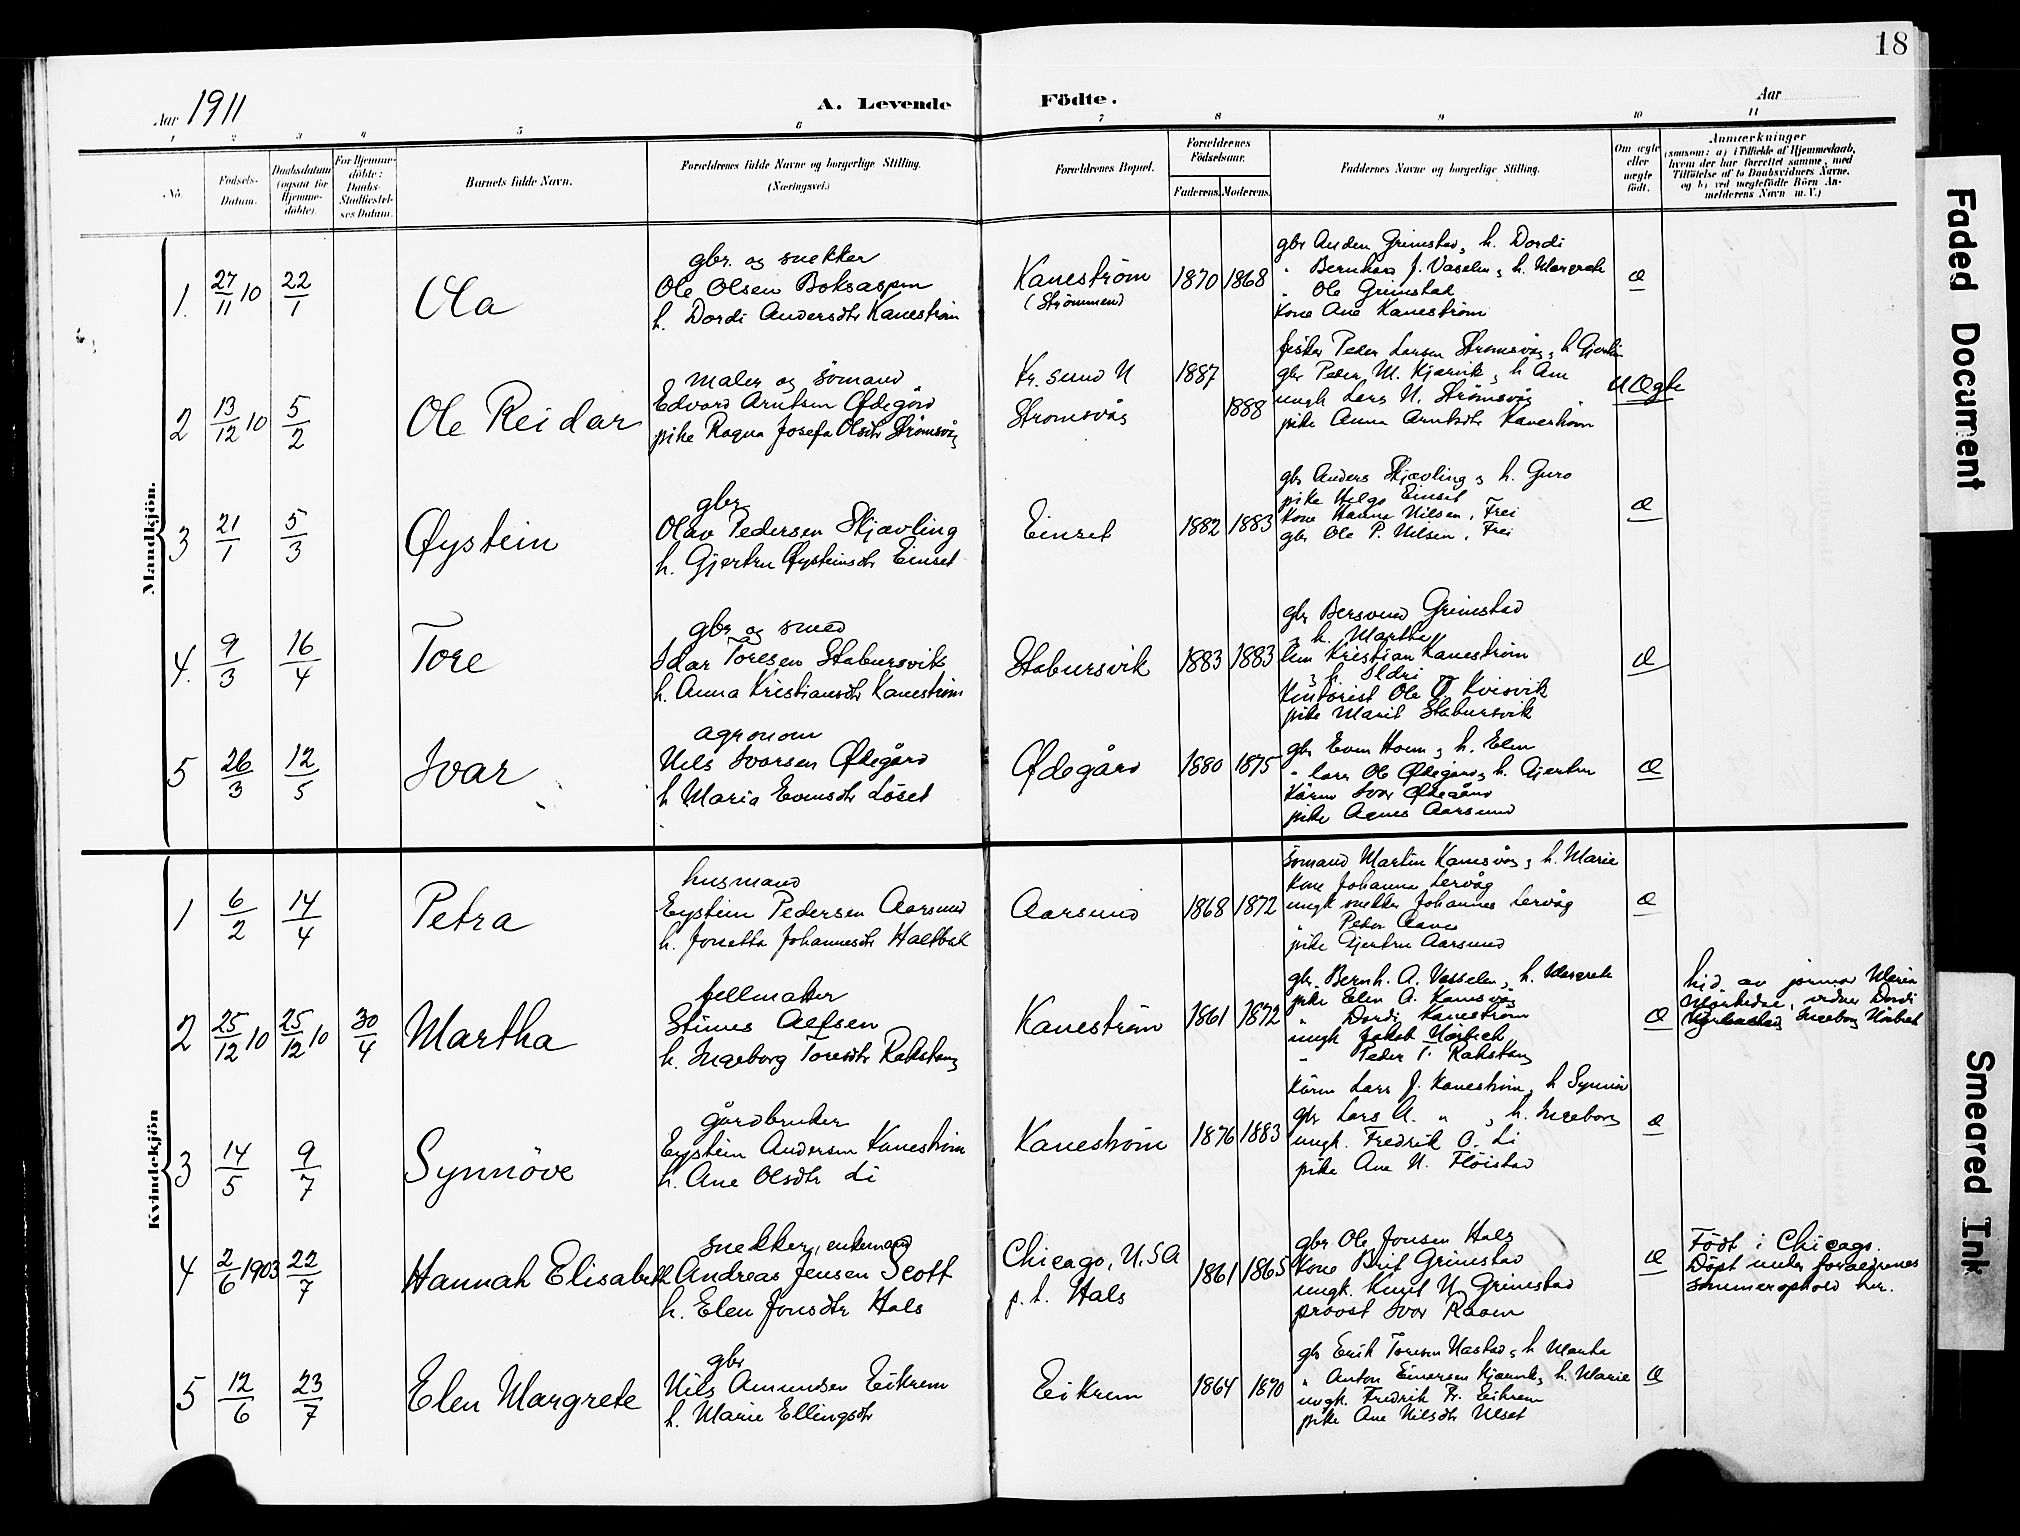 18
Aar 1911
A. Levende Födte.
Aar
1 2 3 4 5 6 7 8 9 10 11
No.
Fødsels-
Datum.
Daabsdatum
(ogsaa for
Hjemme-
døbte).
For Hjemme-
døbte:
Daabs-
Stadfæstel-
ses Datum.
Barnets fulde Navn.
Forældrenes fulde Navne og borgerlige Stilling.
(Næringsvei.)
Forældrenes Bopæl.
Forældrenes
Fødselsaar.
Faderens. Moderens.
Faddernes Navne og borgerlige Stilling.
Om ægte
eller
uægte
født.
Anmærkninger
(saasom: a) i Tilfælde af Hjemmedaab,
hvem der har forrettet samme, med
Tilføielse af to Daabsvidners Navne,
og b) ved uægtefødte Börn An-
melderens Navn m. V.)
Mandkjön.
1. 27/11 10 22/1 Ola
gbr. og snekker
Ole Olsen Boksaspen
h. Dordi Andersdtr Kanestrøm
Kanestrøm
(Strømmen)
1870 1868
gbr Anders Grimstad, h. Dordi
" Bernhard J. Vaselen, h. Margrete
" Ole Grimstad
Kone Ane Kanestrøm
Æ
2 13/12 10 5/2 Ole Reidar
maler og sömand
Edvard Arntsen Ødegård
pike Ragna Josefa Olsdtr Strömsvåg
Kr. sund N
Strømsvåg
1887
1888
fisker Peder Larsen Strømsvåg, h. Gjertru
gbr Peder M. Kjærvik, h. Ane
ungk Lars N. Strømsvåg
pike Anna Arntsdtr Kanestrøm
uÆgte
3 21/1 5/3 Øystein
gbr
Olav Pedersen Skjævling
h. Gjertru Øysteinsdtr Einset
Einset
1882 1883
gbr Anders Skjævling, h. Guro
pike Helga Einset
Kone Hanna Nilsen, Frei
gbr Ole P. Nilsen, Frei
Æ
4. 9/3 16/4 Tore
gbr og smed
Idar Toresen Stabursvik
h. Anna Kristiansdtr Kanestrøm
Stabursvik
1883 1883
gbr Bersvend Grimstad
, h. Martha
Kristian Kanestrøm
, h. Ildri
Kontorist Ole T. Kvisvik
pike Marit Stabursvik
Æ
5 26/3 12/5 Ivar
agronom
Nils Ivarsen Ødegård
h. Maria Evensdtr Löset
Ødegård
1880 1875
gbr Even Hoem, h. Elen
" Lars Ole Ødegård, h. Gjertru
Kårm Ivar Ødegård
pike Agnes Aarsund
Æ
Kvindekjön
1 6/2 14/4 Petra
husmand
Eystein Pedersen Aarsund
h. Jonetta Johannesdtr Haltbak
Aarsund
1868 1872
sömand Martin Kanesvåg, h. Marie
Kone Johanna Lervåg
ungk snekker Johannes Lervåg
" Peder Aarsund
pike Gjertru Aarsund
Æ
2 25/12 10 25/12 10 30/4 Martha
fellmaker
Stines Alfsen
h. Ingeborg Toresdtr Rakstang
Kanestrøm
1861 1872
gbr. Bernh. A. Vasselen, h. Margrete
pike Elen A. Kanesvåg
" Dordi Kanestrøm
ungk Jakob Hörbech
" Peder T. Rakstang
Æ
hjd. av jormor Maria
vidner Dordi
Ingeborg
3 14/5 9/7 Synnöve
gårdbruker
Eystein Andersen Kanestrøm
h. Ane Olsdtr Li
Kanestrøm
1876 1883
Kårm Lars J. Kanestrøm, h. Synnöv
gbr Lars A. " , h. Ingeborg
ungk. Fredrik O. Li
pike Ane N. Flöistad
Æ
4 2/6 1903 22/7 Hannah Elisabeth
snekker, enkemand
Andreas Jensen Scott
h. Elen Jonsdtr Hals
Chicago, U.S.A
p. t. Hals
1861 1865
gbr Ole Jonsen Hals
Kone Brit Grimstad
ungk. Knut N. Grimstad
provst Ivar Raaen
Æ
Födt i Chicago.
Döpt under forældrenes
sommerophold her.
5 12/6 23/7 Elen Margrete
gbr
Nils Amundsen Eikrem
h. Marie Ellingsdtr
Eikrem
1864 1870
gbr Erik Toresen Nastad, h. Martha
" Anton Einarsen Kjærvik, h. Marie
ungk. Fredrik Pr. Eikrem
pike Ane Nilsdtr Ulset
Æ
Faded Document
Smeared Ink